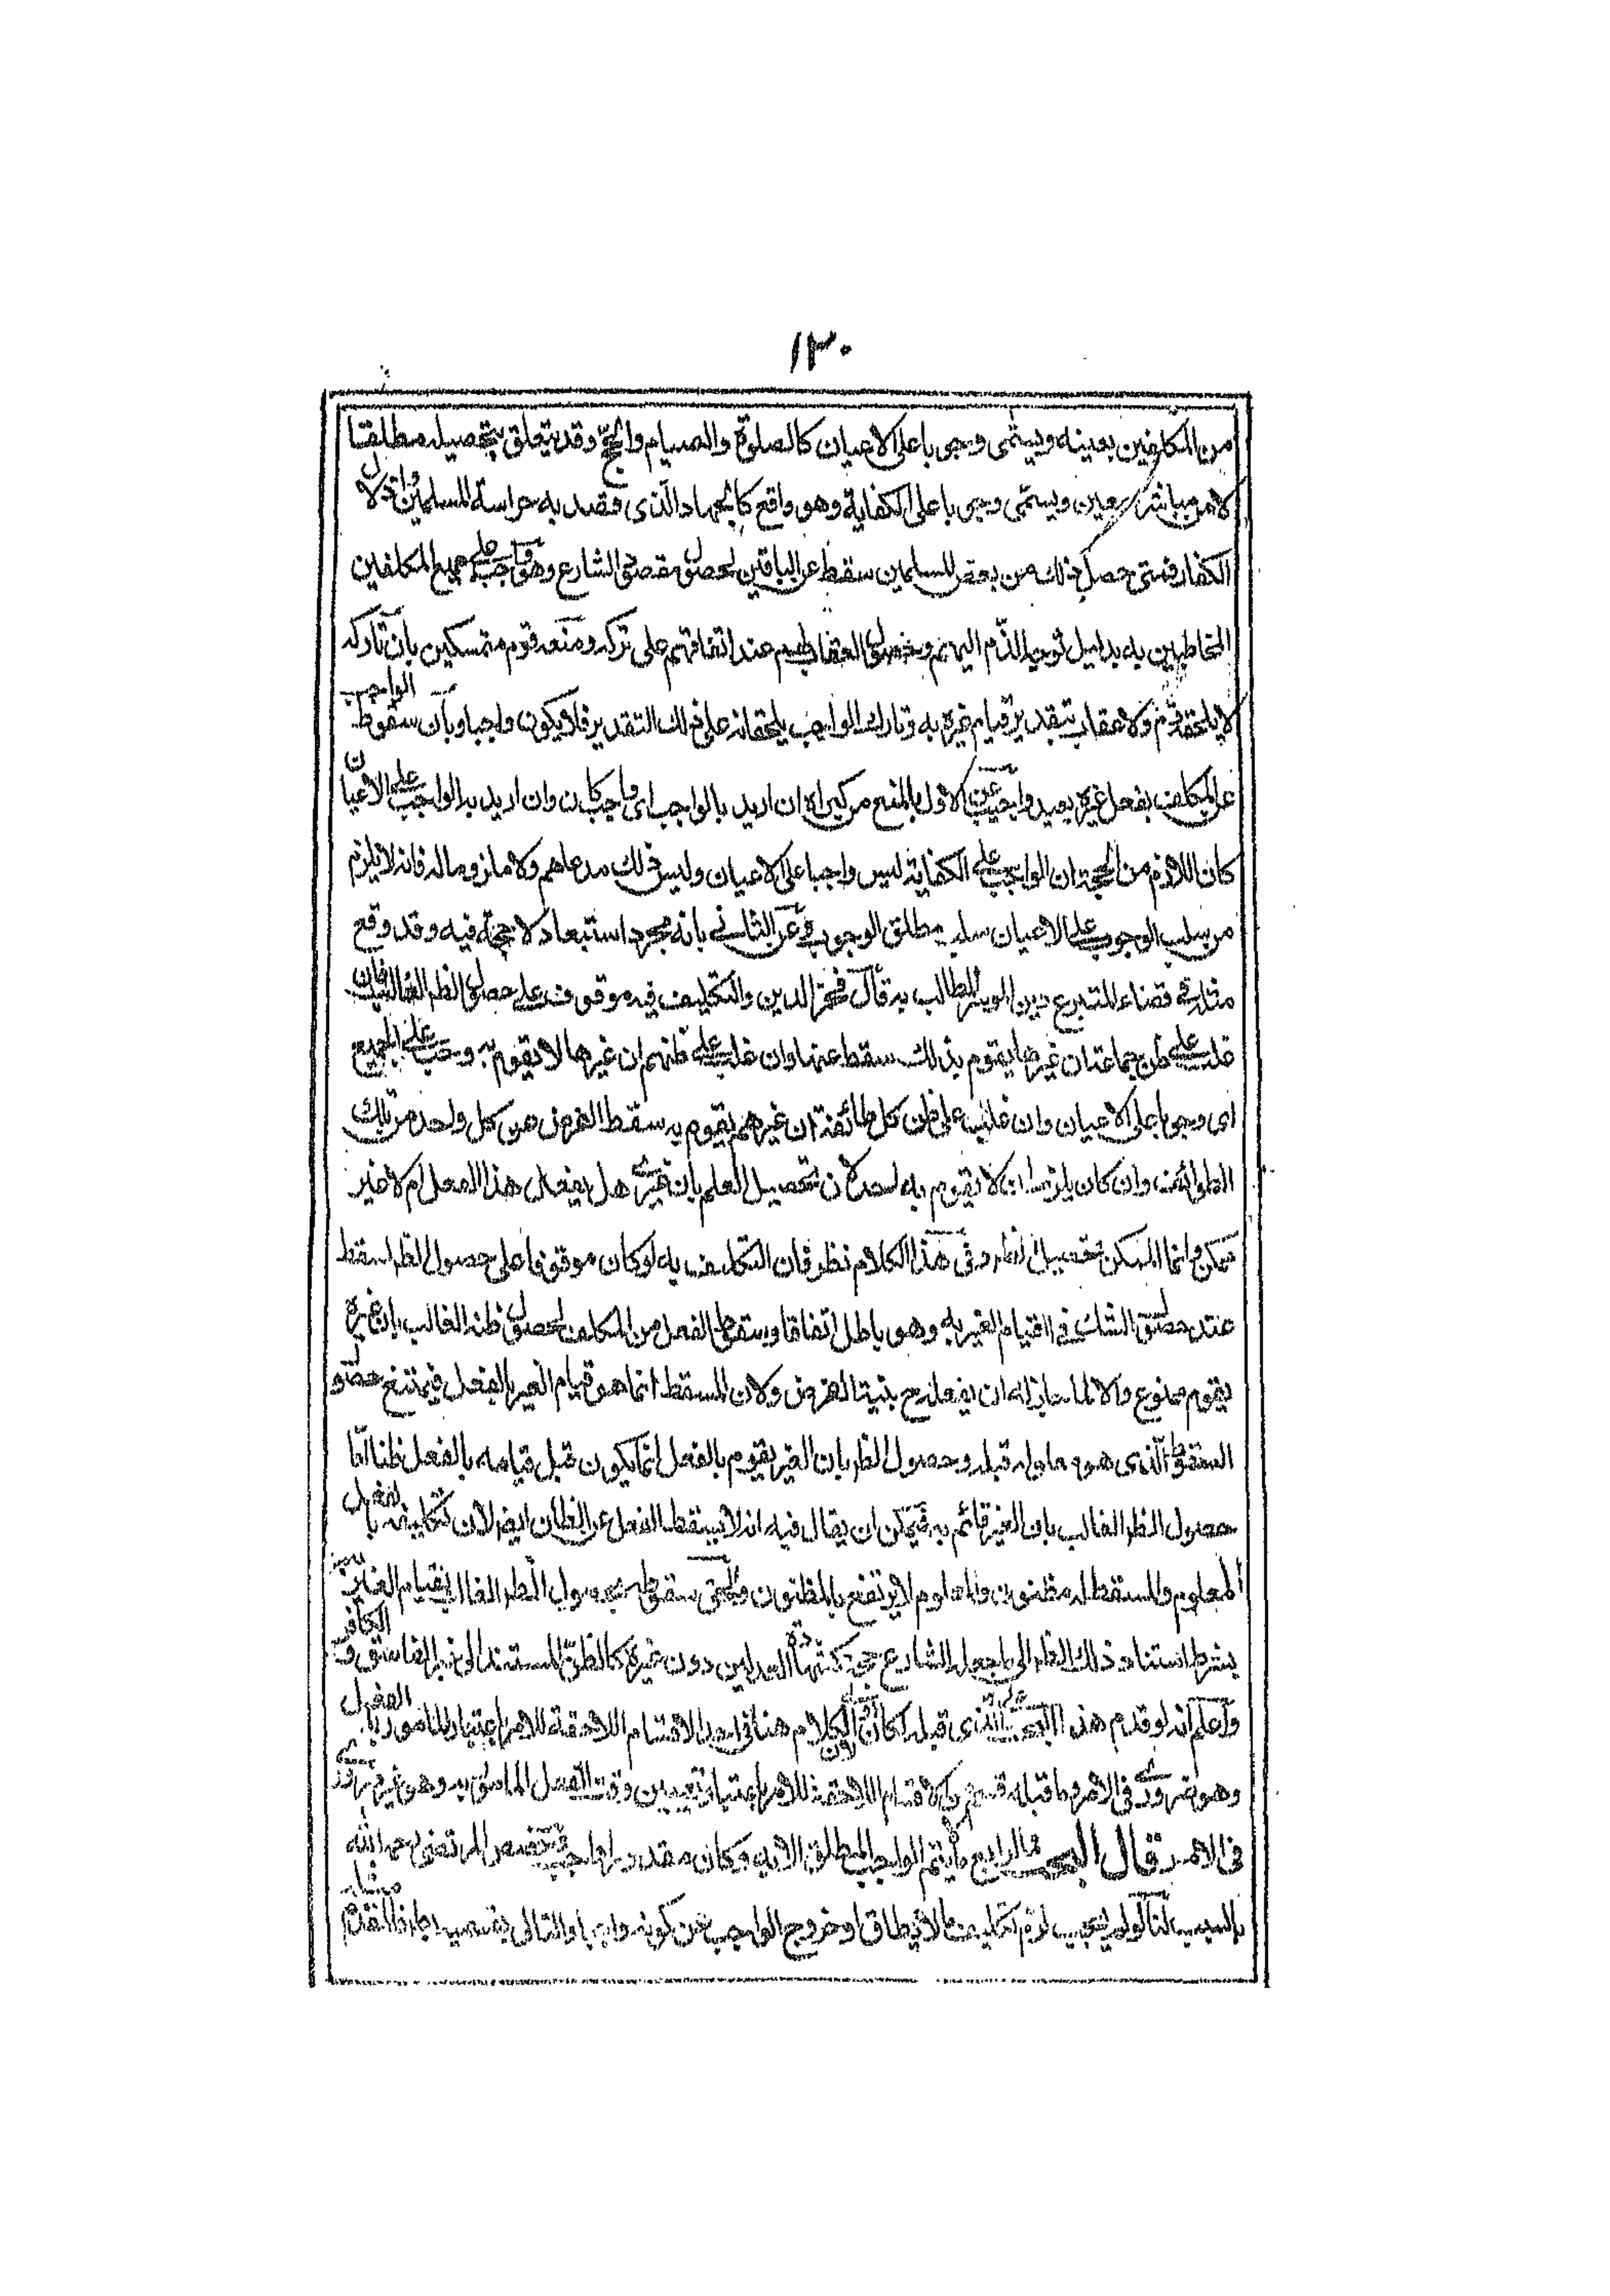 ١٣٠
من المكلفين بعينه ويسمى وجوبا على الاعيان كالصلوة والصيام والحج وقد يتعلق بتحصيله مطلقا
لا من مباشر معين ويسمى وجوبا على الكفاية وهو واقع كالجهاد الذى قصد به حراسة المسلمين واذلال
الكفار فمتى حصل ذلك من بعض المسلمين سقط عن الباقين لحصول مقصود الشارع وهو واجب على جميع المكلفين
المخاطبين به بدليل توجه الذم اليهم وحصول العقاب لهم عند اتفاقهم على تركه ومنعه قوم متمسكين بان تاركه
لا يلحقه ذم ولا عقاب بتقدير قيام غيره به وتارك الواجب يلحقانه على ذلك التقدير فلا يكون واجبا وبان سقوط الواجب
عن المكلف بفعل غيره بعيد واجيب عن الاول بالمنع من كبراه ان اريد بالواجب اى واجب كان وان اريد به الواجب على الاعيان
كان اللازم من الحجة ان الواجب على الكفاية ليس واجبا على الاعيان وليس ذلك مدعاهم ولا ملزوما له فانه لا يلزم
من سلب الوجوب على الاعيان سلب مطلق الوجوب وعن الثانى بانه مجرد استبعاد لا حجة فيه وقد وقع
مثله فى قضاء المتبرع دين الموسر المطالب به قال فخر الدين والتكليف فيه موقوف على حصول الظن الغالب فان
غلب على ظن جماعة ان غيرها يقوم بذلك سقط عنها وان غلب على ظنهم ان غيرها لا يقوم به وجب على الجميع
اى وجوبا على الاعيان وان غلب على ظن كل طائفة ان غيرهم يقوم به سقط الفرض عن كل واحد من تلك
الطوائف وان كان يلزم ان لا يقوم به احد لان تحصيل العلم بان غيرى هل يفعل هذا الفعل ام لا غير
ممكن وانما الممكن تحصيل الظن وفى هذا الكلام نظر فان التكليف به لو كان موقوفا على حصول الظن لسقط
عند حصول الشك فى القيام الغير به وهو باطل اتفاقا وسقوط الفعل من المكلف لحصول ظنه الغالب بان غيره
يقوم ممنوع والا لما جاز له ان يفعله ح بنية الفرض ولان المسقط انما هو قيام الغير بالفعل فيمتنع حصول
السقوط الذى هو معلوله قبله وحصول الظن بان الغير يقوم بالفعل انما يكون قبل قيامه بالفعل ظنا اما
حصول الظن الغالب بان الغير قائم به فيمكن ان يقال فيه انه لا يسقط الفعل عن الظان ايضا لان تكليفه بالفعل
معلوم والمسقط له مظنون والمعلوم لا يرتفع بالمظنون والحق سقوطه بحصول الظن الغالب بقيام الغير به
بشرط استناد ذلك الظن الى ما جعله الشارع حجة كشهادة العدلين دون غيره كالظن المستند الى خبر الفاسق والكافر
واعلم انه لو قدم هذا البحث على الذى قبله لكان اولى لان الكلام هنا فى احد الاقسام اللاحقة للامر باعتبار المامور بالفعل
وهو ضرورى فى الامر وما قبله قسم من الاقسام اللاحقة للامر باعتبار تعيين وقت الفعل المامور به وهو غير ضرورى
فى الامر قال البحث الرابع ما لا يتم الواجب المطلق الا به وكان مقدورا واجب وخصص المرتضى رحمه الله
بالسبب لنا لو لم يجب لزم تكليف ما لا يطاق او خروج الواجب عن كونه واجبا والتالى بقسميه باطل فالمقدم مثله